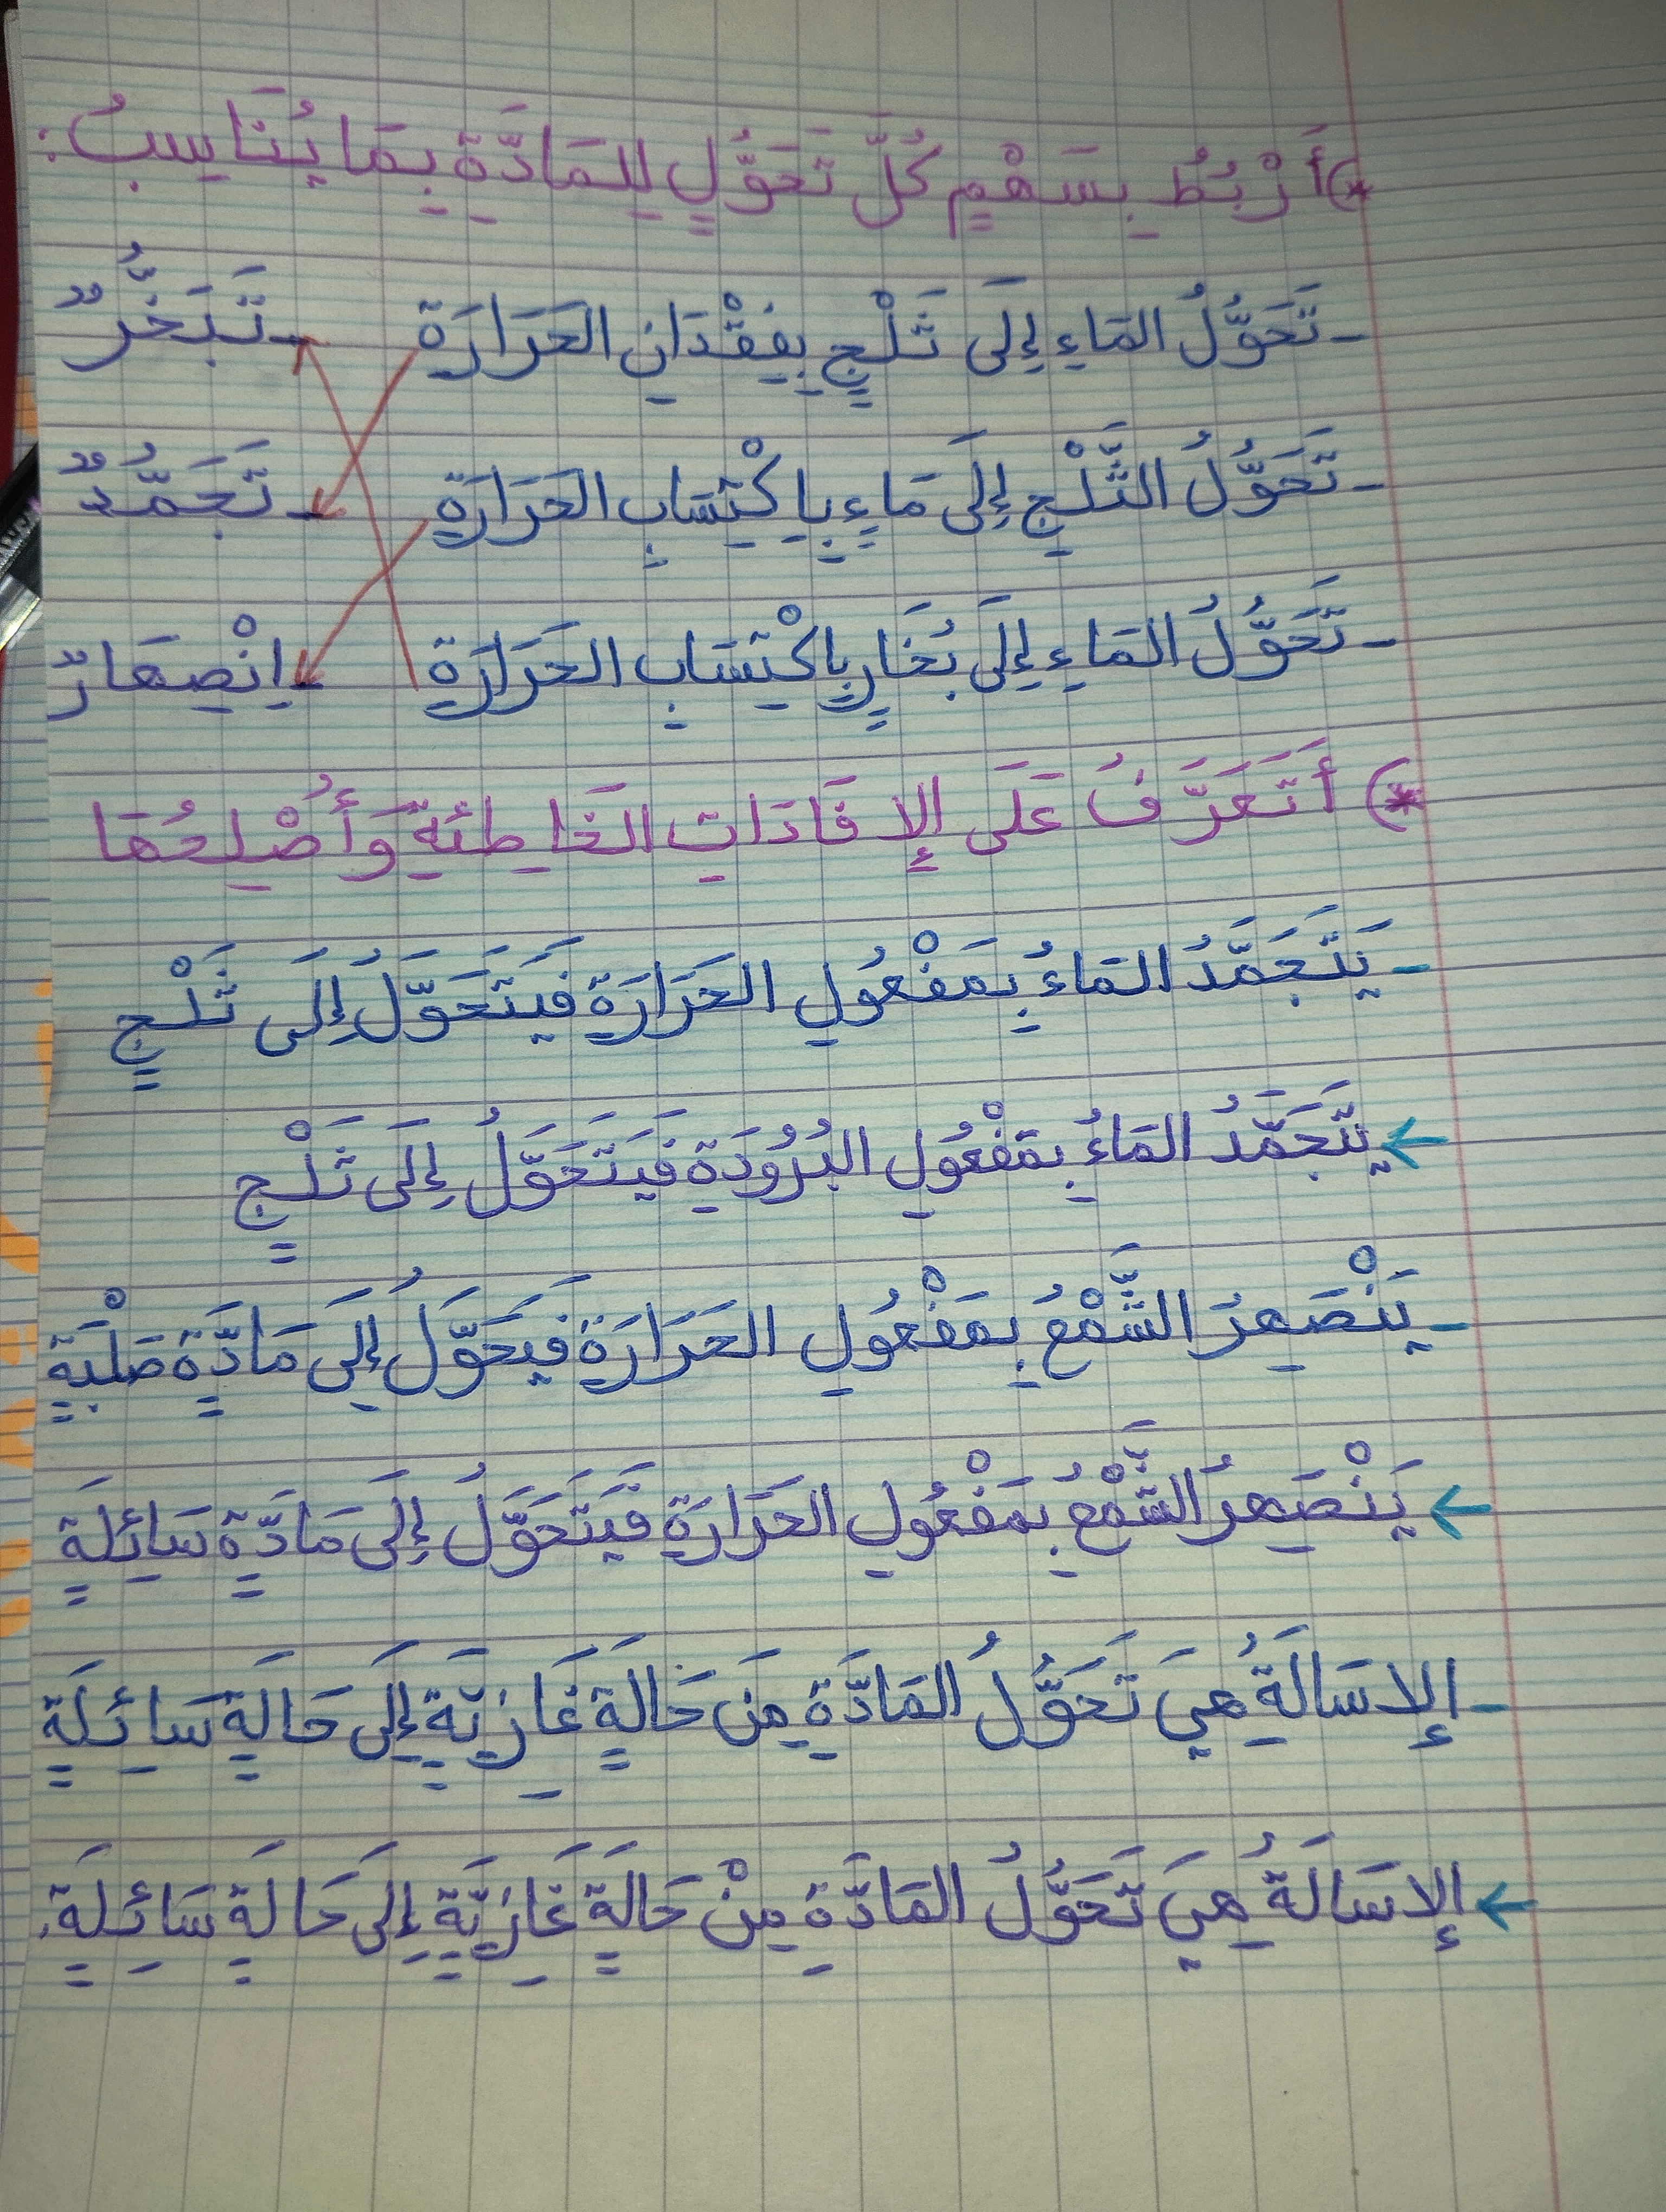 *) أَرْبُطُ بِسَهْمٍ كُلَّ تَحَوُّلٍ لِلمَادَّةِ بِمَا يُنَاسِبُ:
- تَحَوُّلُ المَاءِ إِلَى ثَلْجٍ بِفِقْدَانِ الحَرَارَةِ - تَبَخُّرٌ
- تَحَوُّلُ الثَّلْجِ إِلَى مَاءٍ بِاكْتِسَابِ الحَرَارَةِ - تَجَمُّدٌ
- تَحَوُّلُ المَاءِ إِلَى بُخَارٍ بِاكْتِسَابِ الحَرَارَةِ - اِنْصِهَارٌ
*) أَتَعَرَّفُ عَلَى الإِفَادَاتِ الخَاطِئَةِ وَأُصْلِحُهَا
- يَتَجَمَّدُ المَاءُ بِمَفْعُولِ الحَرَارَةِ فَيَتَحَوَّلُ إِلَى ثَلْجٍ
← يَتَجَمَّدُ المَاءُ بِمَفْعُولِ البُرُودَةِ فَيَتَحَوَّلُ إِلَى ثَلْجٍ
- يَنْصَهِرُ الشَّمْعُ بِمَفْعُولِ الحَرَارَةِ فَيَحَوَّلُ إِلَى مَادَّةٍ صَلْبَةٍ
← يَنْصَهِرُ الشَّمْعُ بِمَفْعُولِ الحَرَارَةِ فَيَتَحَوَّلُ إِلَى مَادَّةٍ سَائِلَةٍ
- الإِسَالَةُ هِيَ تَحَوُّلُ المَادَّةِ مِنْ حَالَةٍ غَازِيَّةٍ إِلَى حَالَةٍ سَائِلَةٍ
← الإِسَالَةُ هِيَ تَحَوُّلُ المَادَّةِ مِنْ حَالَةٍ غَازِيَّةٍ إِلَى حَالَةٍ سَائِلَةٍ.